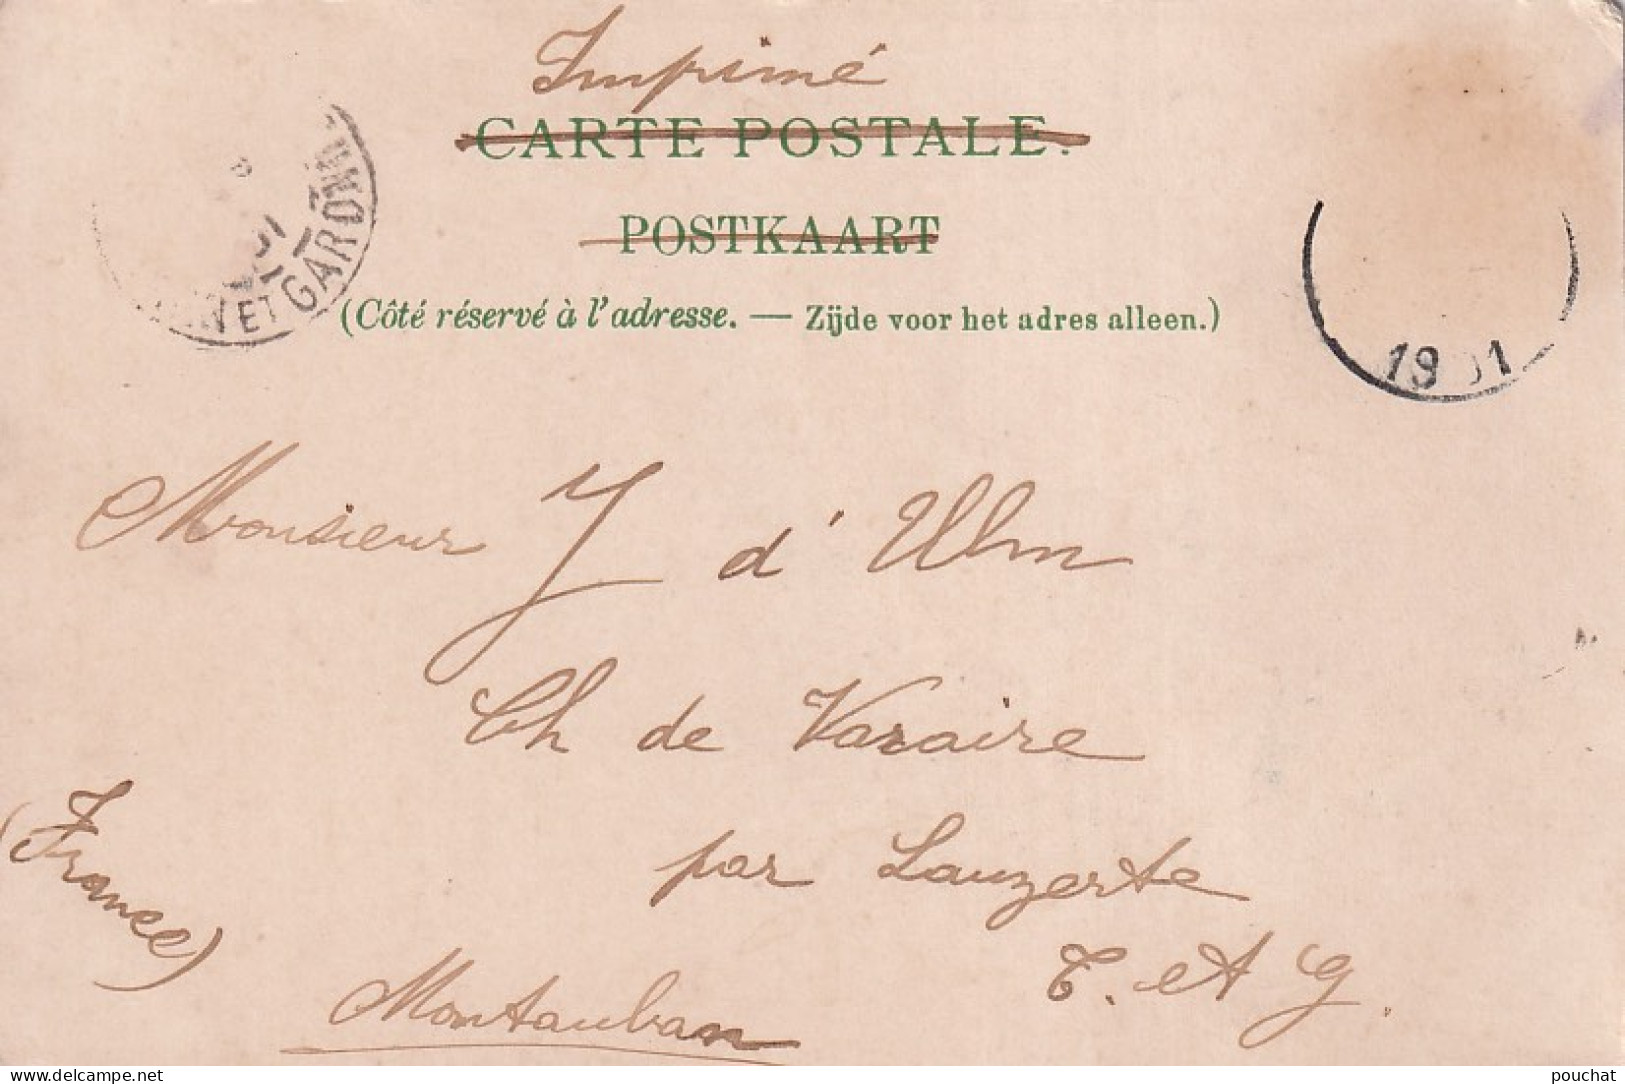 Imprimé
CARTE POSTALE.
POSTKAART
(Côté réservé à l'adresse. — Zijde voor het adres alleen.)
ET GARONNE
01
19 01
Monsieur J d'Ulm
Ch de Varaire
par Lauzerte
T. et G.
(France)
Montauban
www.delcampe.net
pouchat